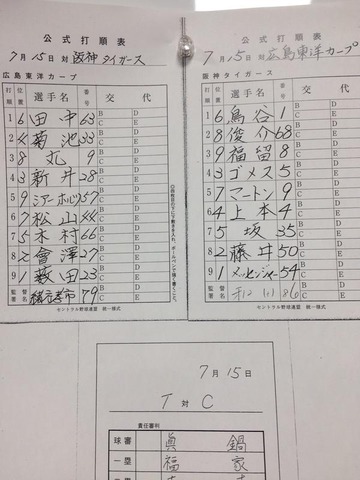 公式打順表
7月15日 対 阪神タイガース
広島東洋カープ
打順 位置 選手名 番号 交代
1 6 田中 63 B C D E
2 4 菊池 33 B C D E
3 8 丸 9 B C D E
4 3 新井 28 B C D E
5 9 シアーホルツ 57 B C D E
6 7 松山 44 B C D E
7 5 木村 66 B C D E
8 2 會澤 27 B C D E
9 1 薮田 23 B C D E
監督 緒方孝市 79
セントラル野球連盟 統一様式
公式打順表
7月15日 対 広島東洋カープ
阪神タイガース
打順 位置 選手名 番号 交代
1 6 鳥谷 1 B C D E
2 8 俊介 68 B C D E
3 9 福留 8 B C D E
4 3 ゴメス 5 B C D E
5 7 マートン 9 B C D E
6 4 上本 4 B C D E
7 5 坂 35 B C D E
8 2 藤井 50 B C D E
9 1 メッセンジャー 54 B C D E
監督 和田 86
セントラル野球連盟 統一様式
7月15日
T 対 C
責任審判
球審 眞鍋
一塁 福家